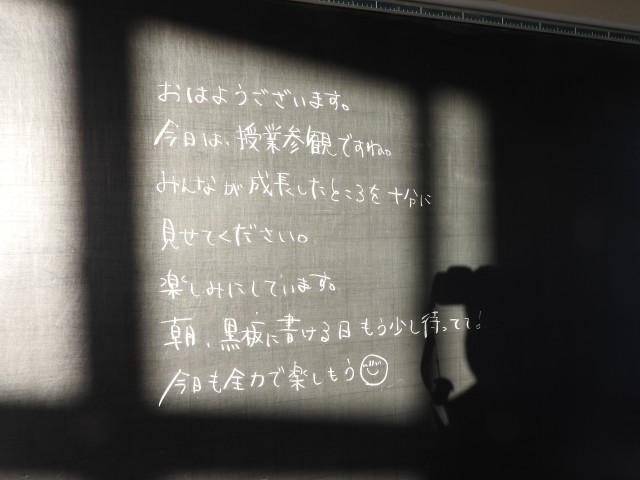 おはようございます。
今日は、授業参観ですね。
みんなが成長したところを十分に
見せてください。
楽しみにしています。
朝、黒板に書ける日もう少し待ってて!
今日も全力で楽しもう